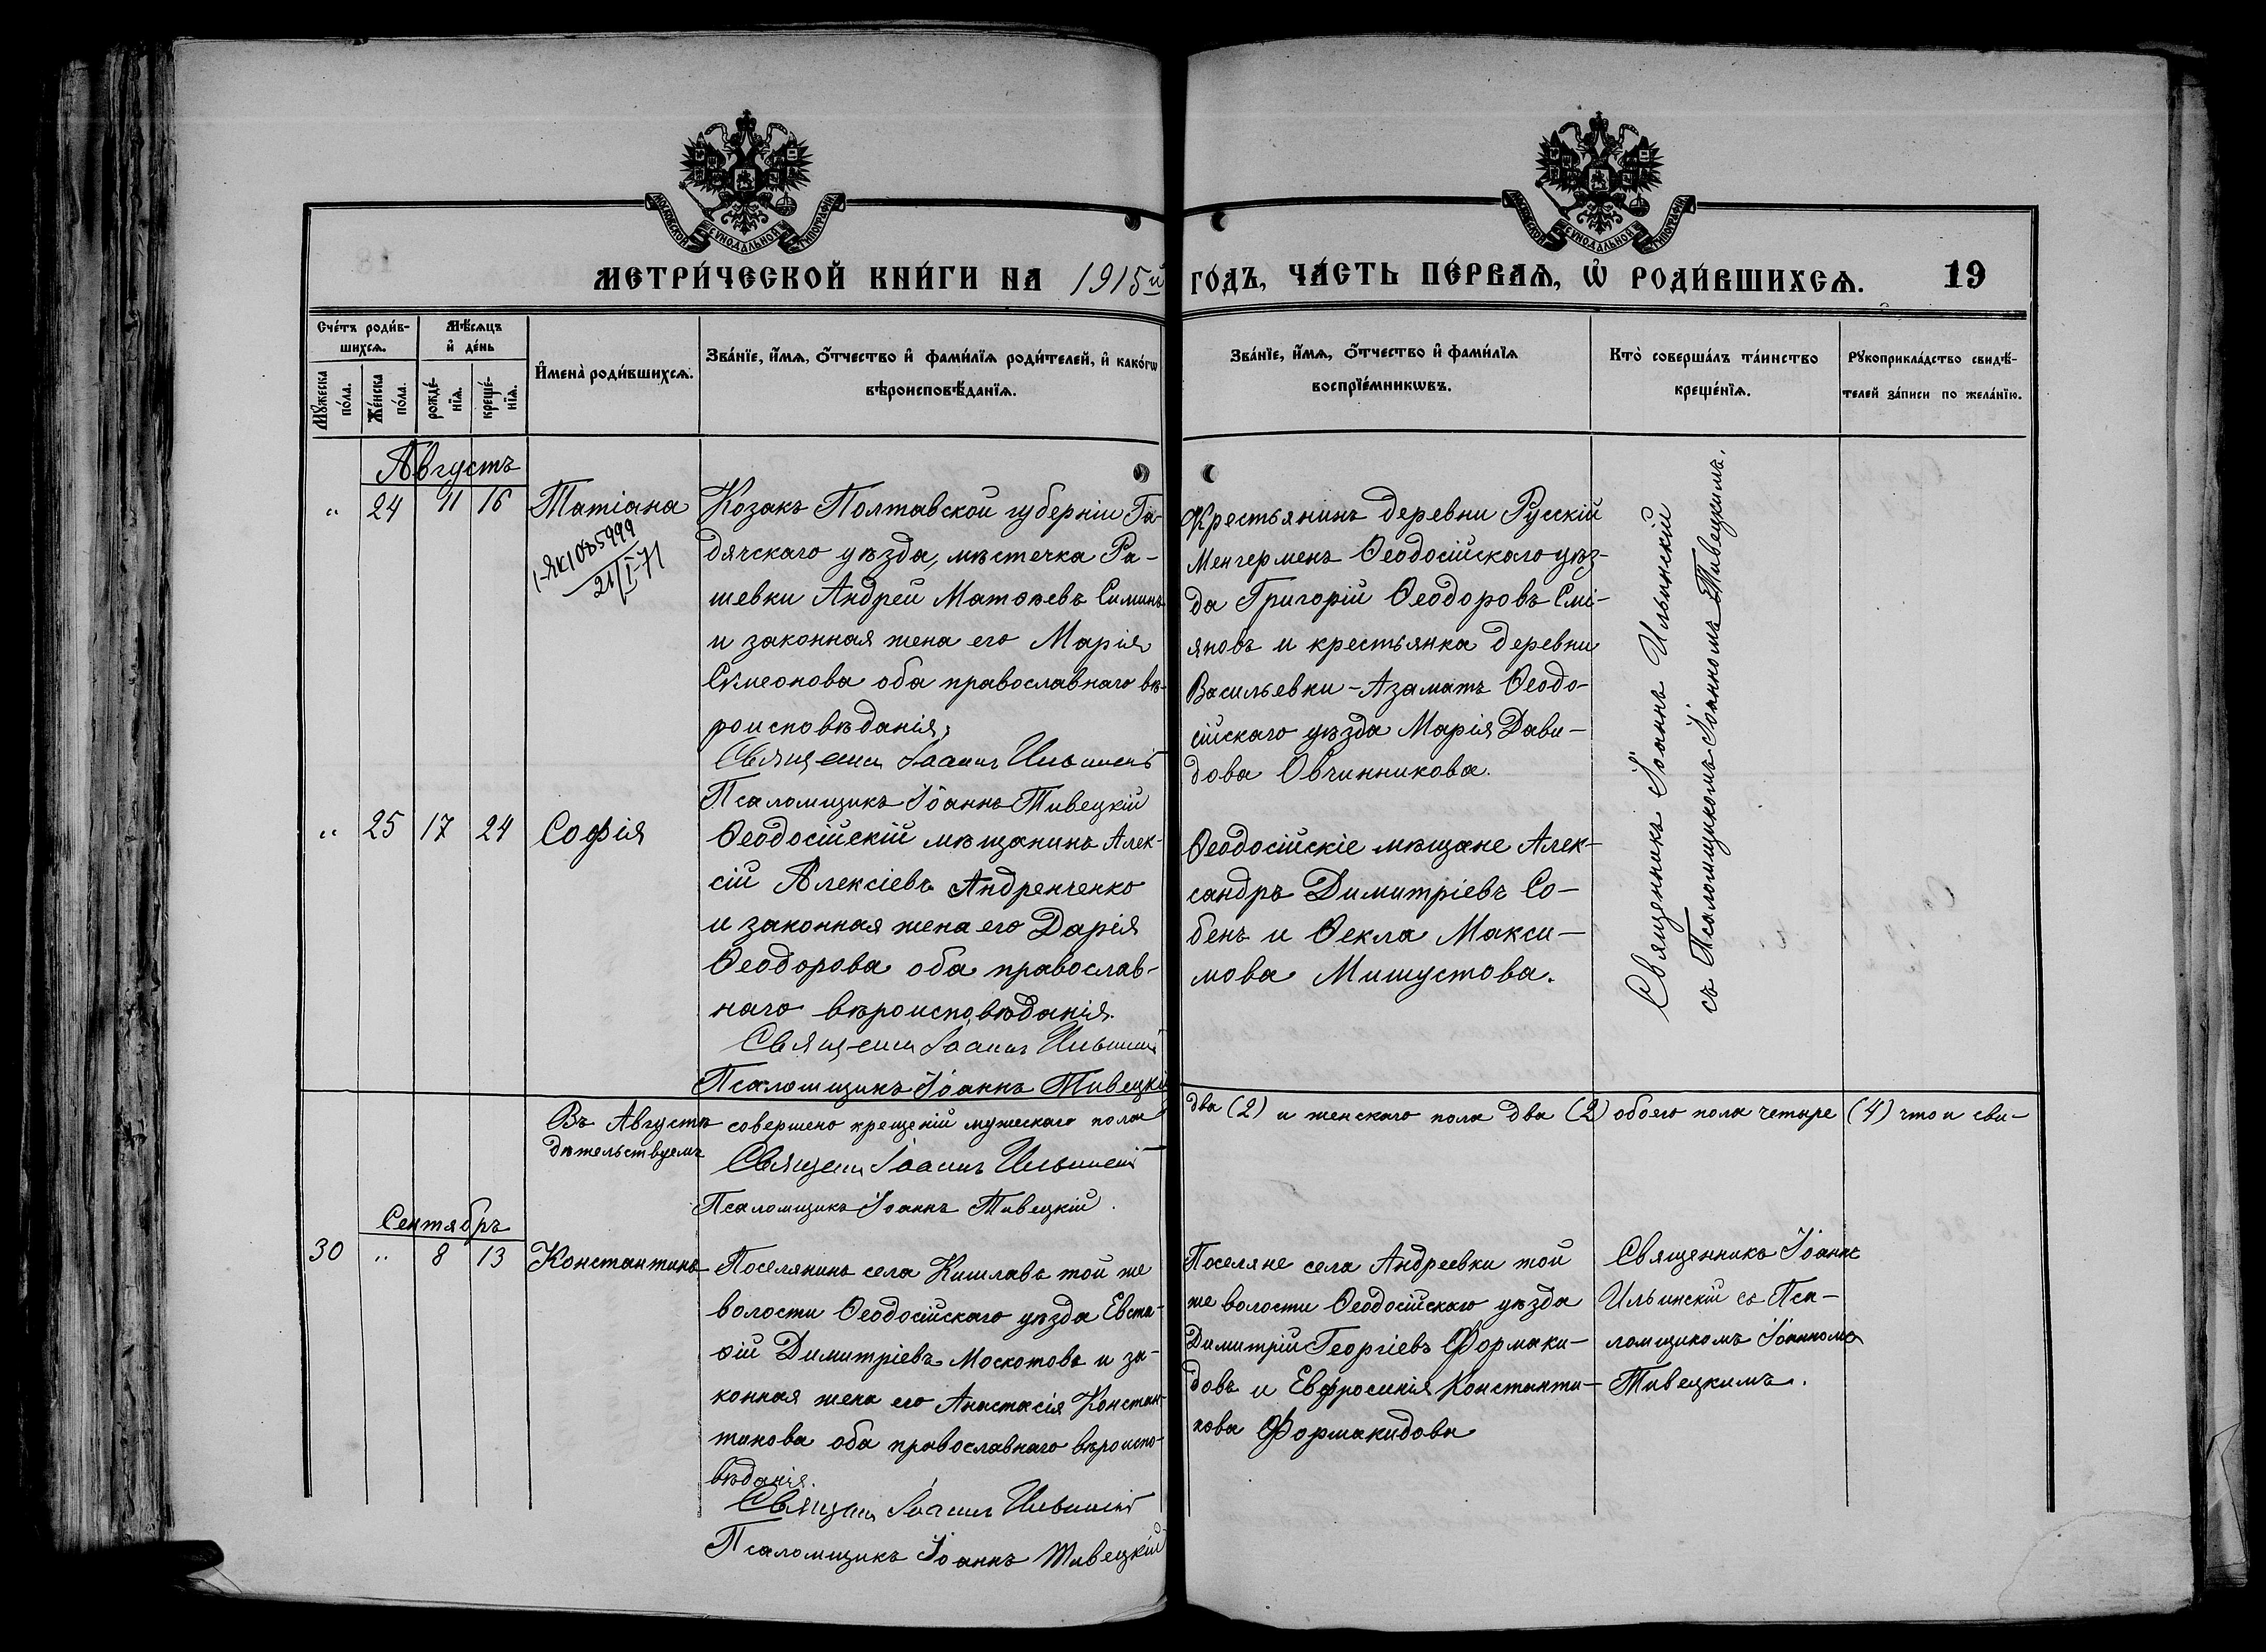 МОСКОВСКОЙ СѴНОДАЛЬНОЙ ТИПОГРАФІИ
МОСКОВСКОЙ СѴНОДАЛЬНОЙ ТИПОГРАФІИ
МЕТРИ́ЧЕСКОЙ КНИ́ГИ НА 1915й ГО́ДЪ, ЧА́СТЬ ПЕ́РВАѦ, Ѡ҆ РОДИ́ВШИХСѦ. 19
Сче́тъ роди́в-
шихсѧ.
Мꙋ́жеска по́ла.
Же́нска по́ла.
Мѣ́сѧцъ
и҆ де́нь
рожде́-
нїѧ.
креще́-
нїѧ.
И҆мена̀ роди́вшихсѧ.
Зва́нїе, и҆́мѧ, ѻ҆́тчество и҆ фами́лїѧ роди́телей, и҆ како́гѡ
вѣроисповѣ́данїѧ.
Зва́нїе, и҆́мѧ, ѻ҆́тчество и҆ фами́лїѧ
воспрїе́мникѡвъ.
Кто̀ соверша́лъ та́инство
креще́нїѧ.
Рꙋкоприкла́дство свидѣ́-
телей за́писи по жела́нїю.
Августъ
" 24 11 16 Татіана
I-ЯК 1085999
21/I-71
Козакъ Полтавской губерніи Га-
дячскаго уѣзда, мѣстечка Ра-
шевки Андрей Матѳеевъ Симинъ
и законная жена его Марія
Симеонова оба православнаго вѣ-
роисповѣданія.
Священн Іоаннъ Ильинскій
Псаломщикъ Іоаннъ Тивецкій
Крестьянинъ деревни Русскій
Менгерменъ Ѳеодосійскаго уѣз-
да Григорій Ѳеодоровъ Смі-
яновъ и крестьянка деревни
Васильевки-Азаматъ Ѳеодо-
сійскаго уѣзда Марія Дави-
дова Овчинникова.
Священникъ Іоаннъ Ильинскій
съ Псаломщикомъ Іоанномъ Тивецкимъ.
" 25 17 24 Софія
Ѳеодосійскій мѣщанинъ Алек-
сій Алексіевъ Андренченко
и законная жена его Дарія
Ѳеодорова оба православ-
наго вѣроисповѣданія.
Священн Іоаннъ Ильинскій
Псаломщикъ Іоаннъ Тивецкій
Ѳеодосійскіе мѣщане Алек-
сандръ Димитріевъ Со-
бенъ и Ѳекла Макси-
мова Мишустова.
Въ Августѣ совершено крещеній мужескаго пола два (2) и женскаго пола два (2) обоего пола четыре (4) что и сви-
дѣтельствуемъ
Священн Іоаннъ Ильинскій
Псаломщикъ Іоаннъ Тивецкій.
Сентябрь
30 " 8 13 Константинъ
Поселянинъ села Кишлавъ той же
волости Ѳеодосійскаго уѣзда Евста-
ѳій Димитріевъ Москотовъ и за-
конная жена его Анастасія Констан-
тинова оба православнаго вѣроиспо-
вѣданія.
Священн Іоаннъ Ильинскій
Псаломщикъ Іоаннъ Тивецкій
Поселяне села Андреевки той
же волости Ѳеодосійскаго уѣзда
Димитрій Георгіевъ Формаки-
довъ и Евфросинія Константи-
нова Формакидова
Священникъ Іоаннъ
Ильинскій съ Пса-
ломщикомъ Іоанномъ
Тивецкимъ.